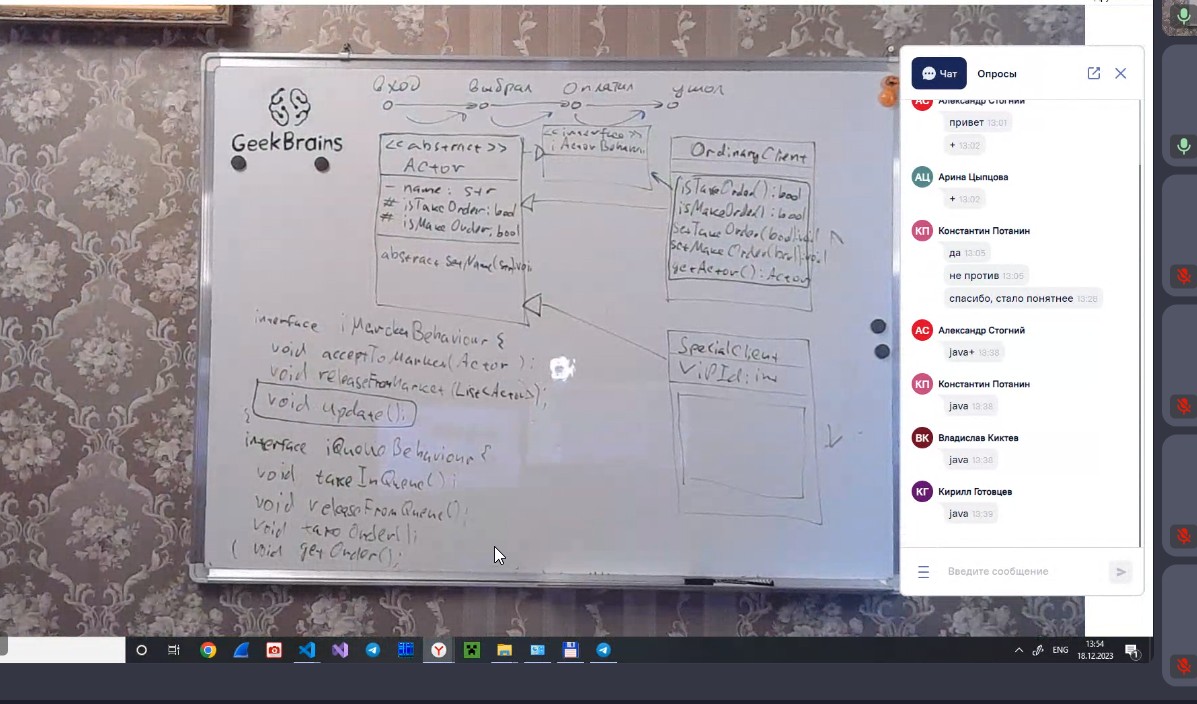 вход выбрал оплатил ушол
GeekBrains
<<abstract>>
Actor
- name: str
# isTakeOrder: bool
# isMakeOrder: bool
abstract setName(str)void
<<interface>>
iActorBehaviour
OrdinaryClient
isTakeOrder(): bool
isMakeOrder(): bool
setTakeOrder(bool):void
setMakeOrder(bool):void
getActor(): Actor
SpecialClient
VIPId: int
interface iMarcketBehaviour {
void acceptToMarket(Actor );
void releaseFromMarket(List<Actor>);
void update();
}
interface iQueueBehaviour {
void takeInQueue();
void releaseFromQueue();
void takeOrder();
void getOrder();
Чат
Опросы
Александр Стогний
привет 13:01
+ 13:02
АЦ
Арина Цыпцова
+ 13:02
КП
Константин Потанин
да 13:05
не против 13:05
спасибо, стало понятнее 13:28
АС
Александр Стогний
java+ 13:38
КП
Константин Потанин
java 13:38
ВК
Владислав Киктев
java 13:38
КГ
Кирилл Готовцев
java 13:39
Введите сообщение
ENG
13:54
18.12.2023
1